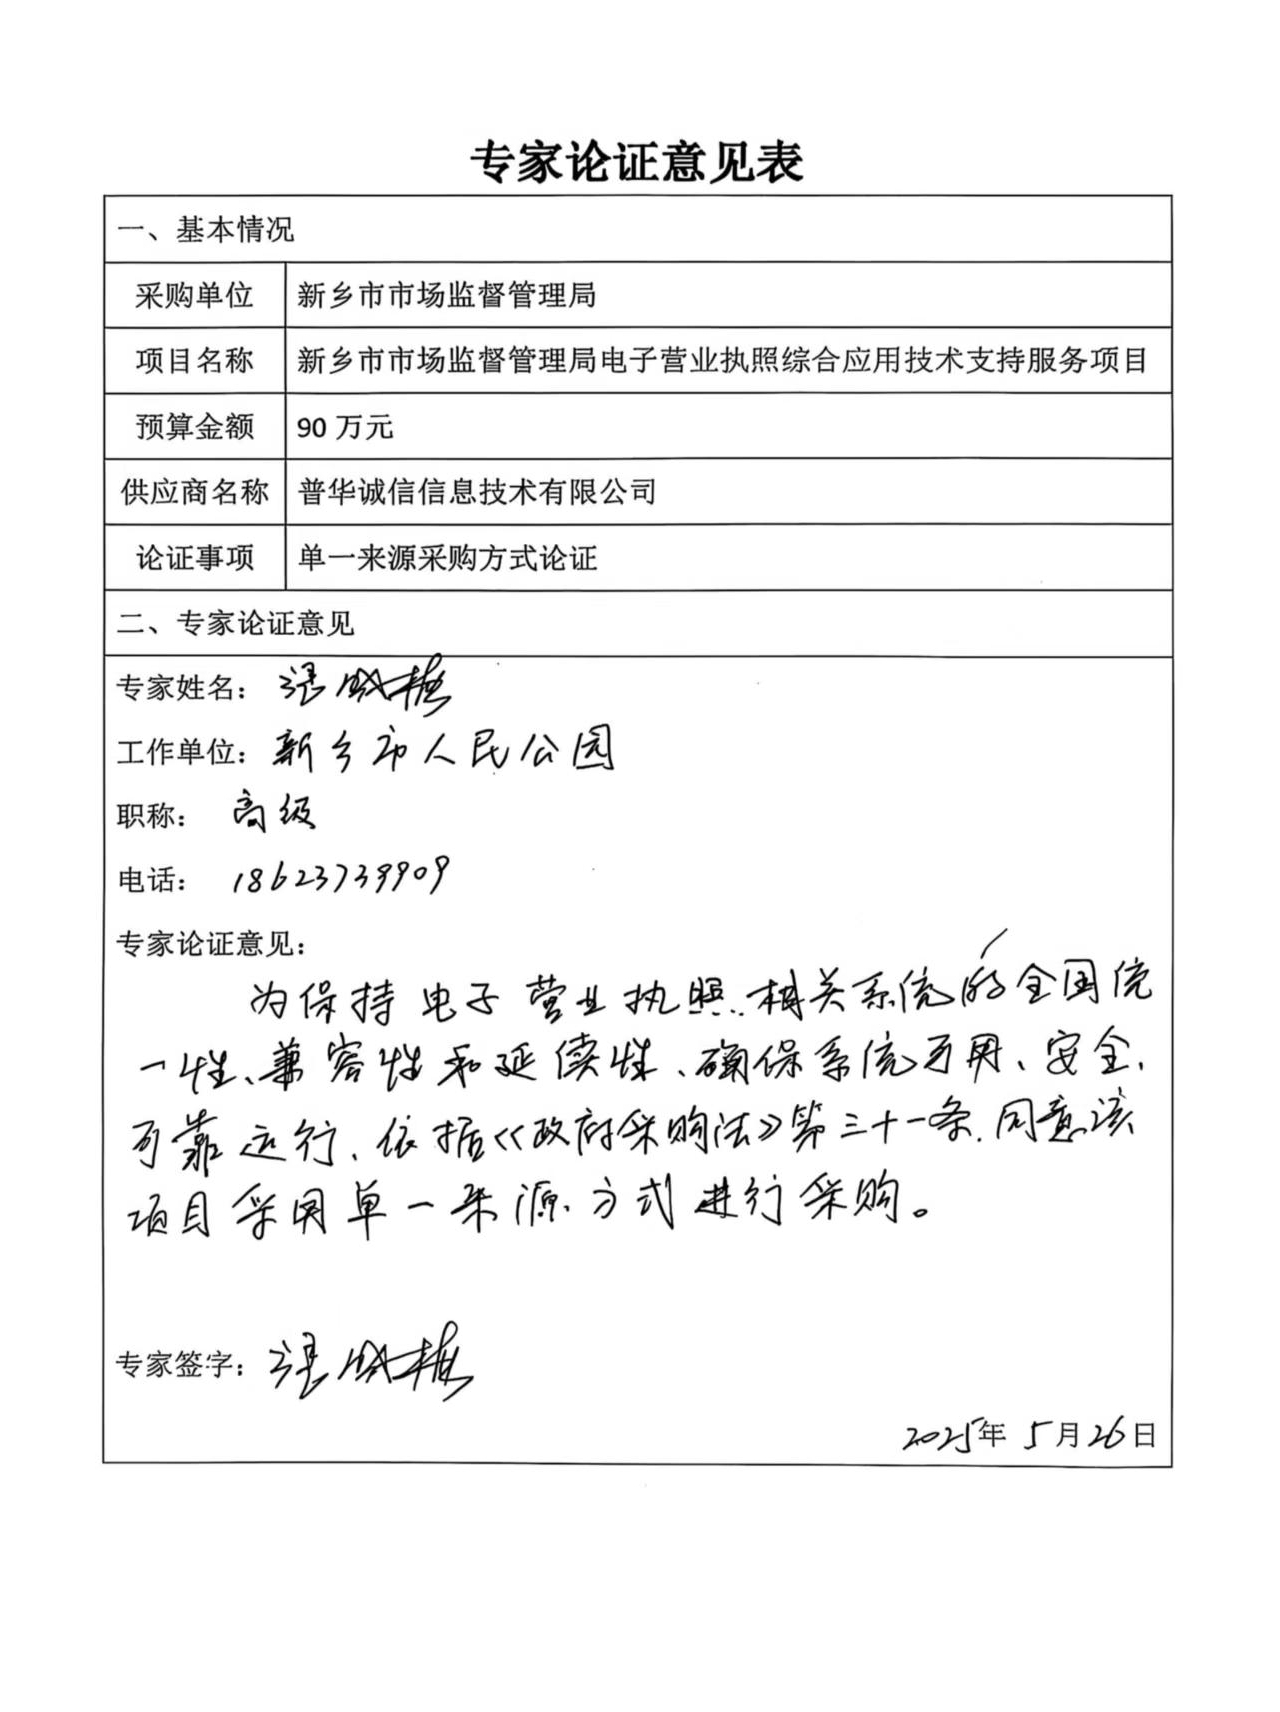 专家论证意见表
一、基本情况
采购单位 新乡市市场监督管理局
项目名称 新乡市市场监督管理局电子营业执照综合应用技术支持服务项目
预算金额 90 万元
供应商名称 普华诚信信息技术有限公司
论证事项 单一来源采购方式论证
二、专家论证意见
专家姓名：
工作单位：新乡市人民公园
职称： 高级
电话： 18623739909
专家论证意见：
为保持电子营业执照相关系统的全国统
一性、兼容性和延续性、确保系统可用、安全、
可靠运行、依据《政府采购法》第三十一条、同意该
项目采用单一来源方式进行采购。
专家签字：
2025年 5月26日